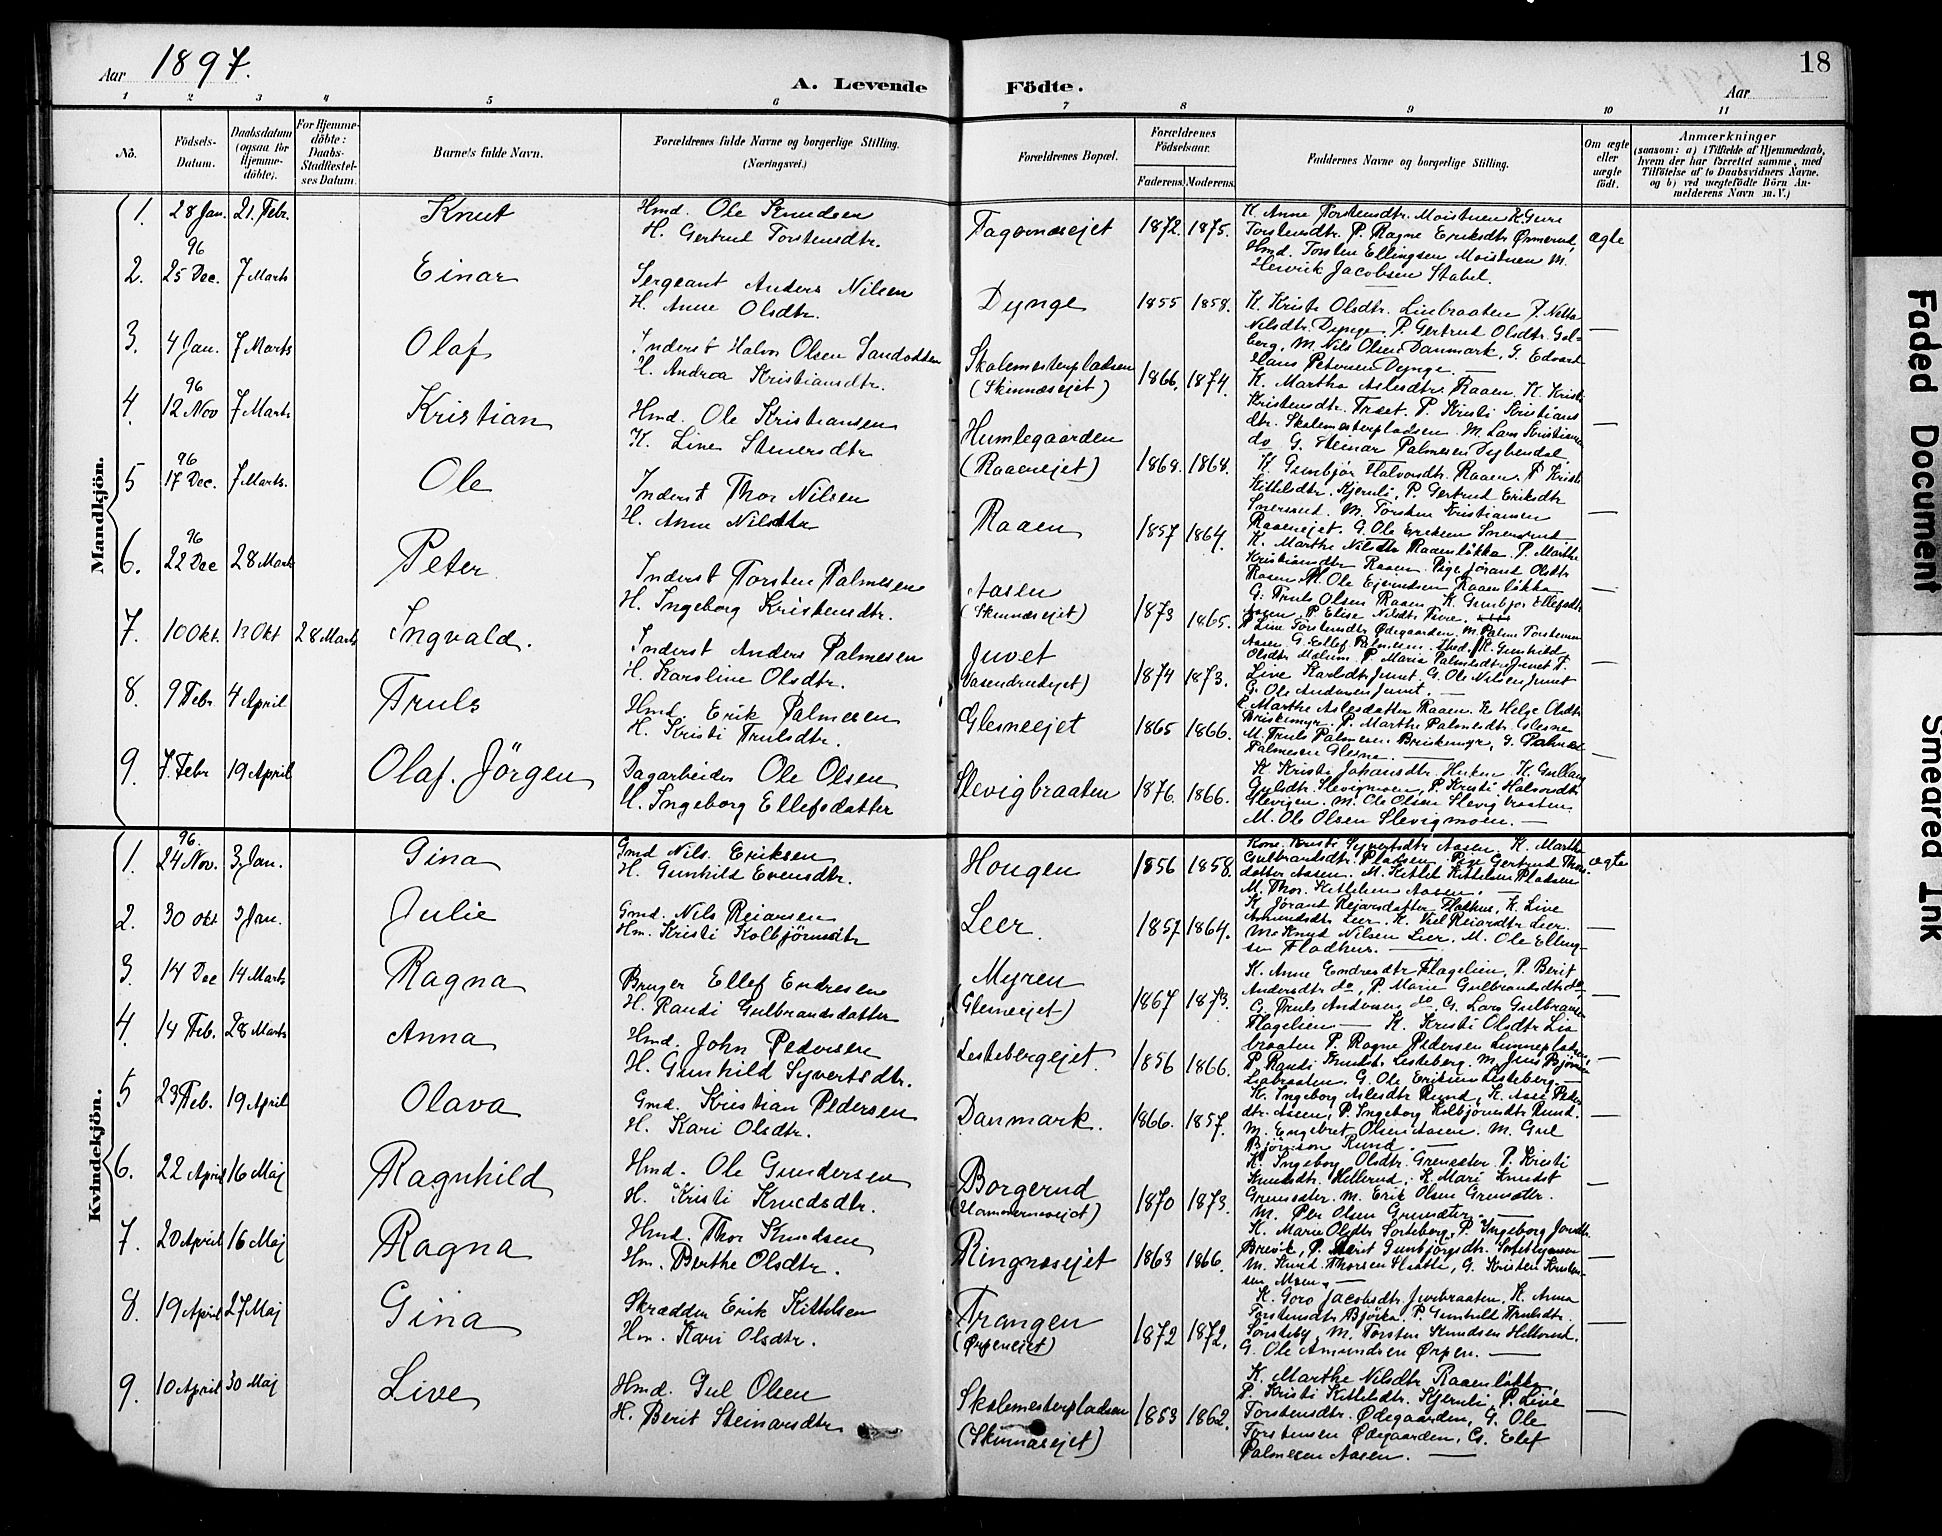 Aar 1897.
A. Levende Födte.
18
Aar
1 2 3 4 5 6 7 8 9 10 11
No.
Födsels-Datum.
Daabsdatum (ogsaa for Hjemme-döbte).
For Hjemme-döbte: Daabs-Stadfæstel-ses Datum.
Barnets fulde Navn.
Forældrenes fulde Navne og borgerlige Stilling. (Næringsvei.)
Forældrenes Bopæl.
Forældrenes Födselsaar.
Faderens. Moderens.
Faddernes Navne og borgerlige Stilling.
Om ægte eller uægte födt.
Anmærkninger
(saasom: a) i Tilfælde af Hjemmedaab, hvem der har forrettet samme, med Tilföielse af to Daabsvidners Navne, og b) ved uægtefödte Börn An-melderens Navn m.V.)
Mandkjön.
1. 28 Jan. 21. Febr. Knut Hmd. Ole Knudsen H. Gertrud Torstensdtr. Fagernæsejet 1872. 1875. K. Anne Torstensdtr. Moistuen K. Guri Torstensdtr. P. Ragne Eriksdtr Ørmerud, Hmd. Torsten Ellingsen Moistuen M. Henrik Jacobsen Stabel. ægte
2. 96 25 Dec. 7 Marts Einar Sergeant Anders Nilsen H. Anne Olsdtr. Dynge 1855 1858. K. Kristi Olsdtr. Linbraaten P. Netta Nilsdtr. Dynge. P. Gertrud Olsdtr. Gol-berg, M. Nils Olsen Danmark, G. Edvart Hans Petersen Dynge. —
3. 4 Jan. 7 Marts Olaf Inderst Halvor Olsen Sandodden H. Andrea Kristiansdtr. Skolemesterpladsen (Skinnæsejet) 1866. 1874. K. Martha Aslesdtr. Raaen, K. Kristi Kristensdtr. Træet. P. Kristi Kristians dtr. Skolemesterpladsen. M. Lars Kristiansen do G. Steinar Palmesen Dybendal —
4. 96 12 Nov 7 Marts Kristian Hmd. Ole Kristiansen K. Line Stenersdtr Humlegaarden (Raaenejet) 1868. 1868. K. Gunbjør Halvorsdtr. Raaen. P Kristi Kittelsdtr. Kjernli, P. Gertrud Eriksdtr Snersrud. M. Torsten Kristiansen Raaenejet. G. Ole Eriksen Snersrud —
5 96 17 Dec. 7 Marts. Ole Inderst Thor Nilsen H. Anne Nilsdtr Raaen 1857 1864. K. Marthe Nilsdtr Raaenløkka. P. Marthe Kristiansdtr Raaen. Pige Jørand Olsdtr Raaen. M. Ole Ejvindsen Raaenløkka G. Truls Olsen Raaen —
6. 96 22 Dec 28 Marts Peter Inderst Torsten Palmesen H. Ingeborg Kristensdtr. Aasen (Skinnæsejet) 1873 1865. K. Gunbjør Ellefsdtr Aasen, P. Elise Nilsdtr Ture. P Line Torstensdtr Ødegaarden, M. Palme Torstensen Aasen G. Ellef Palmesen —
7. 10 Okt. 13 Okt 28 Marts Ingvald. Inderst Anders Palmesen H. Karoline Olsdtr. Juvet (Vasendrudejet) 1874 1873. K. Gunhild Olsdtr Malum, P. Maria Palmesdtr Juvet P. Line Karlsdtr Juvet. G. Ole Nilsen Juvet G. Ole Andersen Juvet. —
8. 9 Febr 4 April Truls Hmd Erik Palmesen H. Kristi Trulsdtr. Glesneejet 1865 1866. K. Marthe Aslesdatter Raaen. K. Helge Olsdtr Briskemyr. P. Marthe Palmesdtr Glesne M. Truls Palmesen Briskemyr, G. Palme Palmesen Glesne —
9. 7. Febr 19 April Olaf. Jörgen Dagarbeider Ole Olsen H. Ingeborg Ellefsdatter Slevigbraaten 1876. 1866. K. Kristi Johansdtr. K. Gulbaar Gulsdtr. Slevigmoen, P. Kristi Halvorsdtr Slevigen. M. Ole Olsen Slevigbraaten M. Ole Olsen Slevigmoen. —
Kvindekjön.
1. 96. 24 Nov. 3 Jan. Gina Gmd Nils. Eriksen H. Gunhild Evensdtr. Hougen 1856 1858. Kone Kristi Syvertsdtr Aasen, K. Marthe Gulbrandsdtr. Pladsen. Pige Gertrud Thors-datter Aasen. M. Kittel Kittelsen Pladsen M. Thor. Kittelsen Aasen. — ægte
2. 30 okt 3 Jan. Julie Gmd. Nils Reiarsen Hm. Kristi Kolbjörnsdtr Leer. 1857 1864. K. Jørand Rejarsdatter Flathus, K. Live Amundsdtr Leer. K. Reiarsdtr Leer. M. Knud Nilsen Leer, M. Ole Elling-sen Fladhus. —
3. 14 Dec 14 Marts Ragna Bruger Ellef Endresen H. Randi Gulbrandsdatter Myren (Glesneejet) 1867 1873. K. Anne Endresdtr Flagelien, P. Berit Andersdtr do, P. Marie Gulbrandsdtr do, G. Truls Andersen do G. Lars Gulbransen Flagelien —
4. 14 Feb. 28 Marts Anna Hmd. John Pedersen H. Gunhild Syvertsdtr. Lesteberg ejet. 1856 1866. K. Kristi Olsdtr Lia-braaten P. Ragne Pedersen P Randi Knudsdtr Lesteberg. M. Jens Bjørnsen Liabraaten. G. Ole Eriksen Lesteberg. —
5 23 Feb. 19 April Olava Gmd. Kristian Pedersen H. Kari Olsdtr. Danmark. 1866. 1857. K. Ingeborg Aslesdtr Rund, K. Aase Peders dtr. Aasen, P. Ingeborg Kolbjørnsdtr Rund. M. Engebret Olsen Aasen. M. Gul Bjørnson Rund. —
6. 22 April 16 Maj Ragnhild Hmd. Ole Gundersen H. Kristi Knudsdtr. Borgerud (Hammersnejet) 1870 1873. K. Ingeborg Olsdtr. Grensæter. P. Kristi Knudsdtr. Hellerud, K. Mari Knudsdt Grensæter. M. Erik Olsen Grensæter. M. Per Olsen Grensæter. —
7. 20 April 16 Maj Ragna Hmd. Thor Knudsen Hm. Berthe Olsdtr. Ringnæsejet 1863 1866. K. Marie Olsdtr Sorteberg, P. Ingeborg Jonsdtr. P. Berit Gunbjørgsdtr. M. Knud Thorsen Slaatti, G. Kristen Knuten-sen Moen. —
8. 19 April 27 Maj Gina Skrædder Erik Kittelsen Hm. Kari Olsdtr. Trangen (Ørpenejet) 1872 1872. K. Goro Jacobsdtr. Juvbraaten, K. Anna Torstensdtr Bjørke. P. Gunhild Trulsdtr. Sønsteby, M. Torsten Knudsen Hellerud. G. Ole Amundsen Ørpen. —
9. 10 April 30 Maj Live Hmd. Gul Olsen H. Berit Steinarsdtr Skolemesterpladsen (Skinnæsejet) 1853 1862. K. Marthe Nilsdtr. Raaenløkka P. Kristi Kittelsdtr. Kjernli, P. Live Torstensdtr. Ødegaarden, G. Ole Torstensen Ødegaarden, G. Elef Palmesen Aasen. —
Faded Document
Smeared Ink